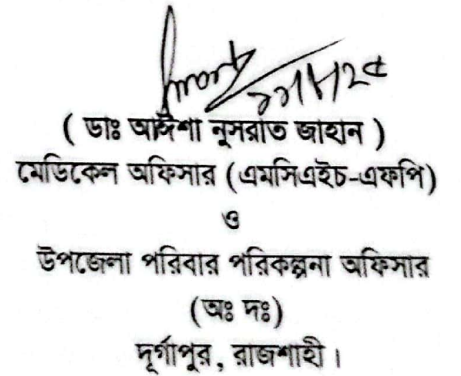 ( ডাঃ আঈশা নুসরাত জাহান )
মেডিকেল অফিসার (এমসিএইচ-এফপি)
ও
উপজেলা পরিবার পরিকল্পনা অফিসার
(অঃ দঃ)
দূর্গাপুর, রাজশাহী।